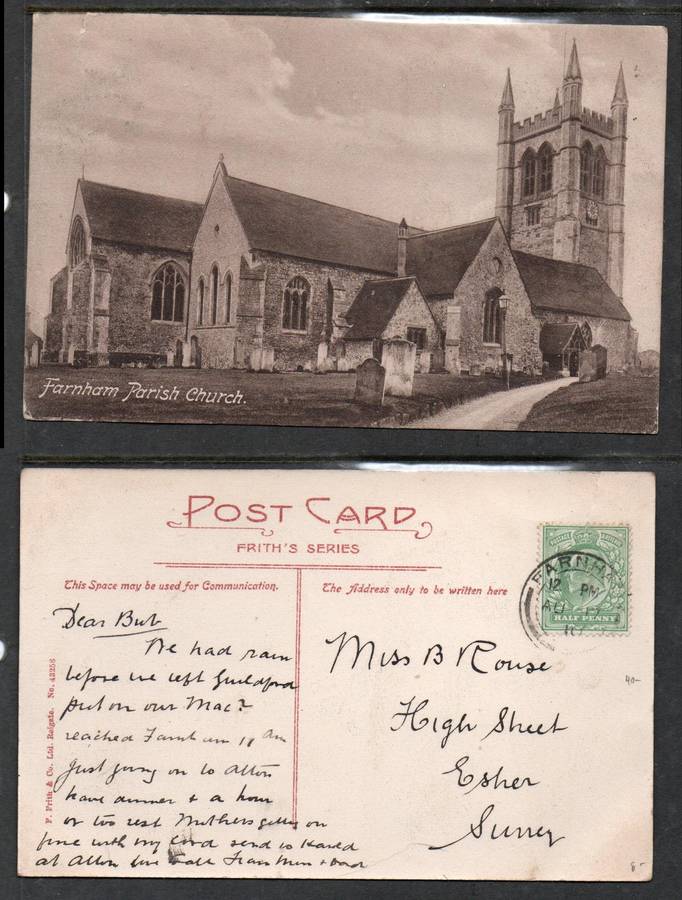 Farnham Parish Church.
POST CARD
FRITH'S SERIES
This Space may be used for Communication.
The Address only to be written here
FARNHA
12 PM
AU 17
10
POSTAGE
HALF PENNY
Dear Bub
We had rain
before we left Guildford
put on our Macs
reached Farnham 11 am
Just going on to Alton
have dinner & a hour
or two rest Mothers getting on
fine with my
at Alton
Miss B Rouse
High Street
Esher
Surrey
F. Frith & Co. Ltd. Reigate. No. 43256
40-
8-